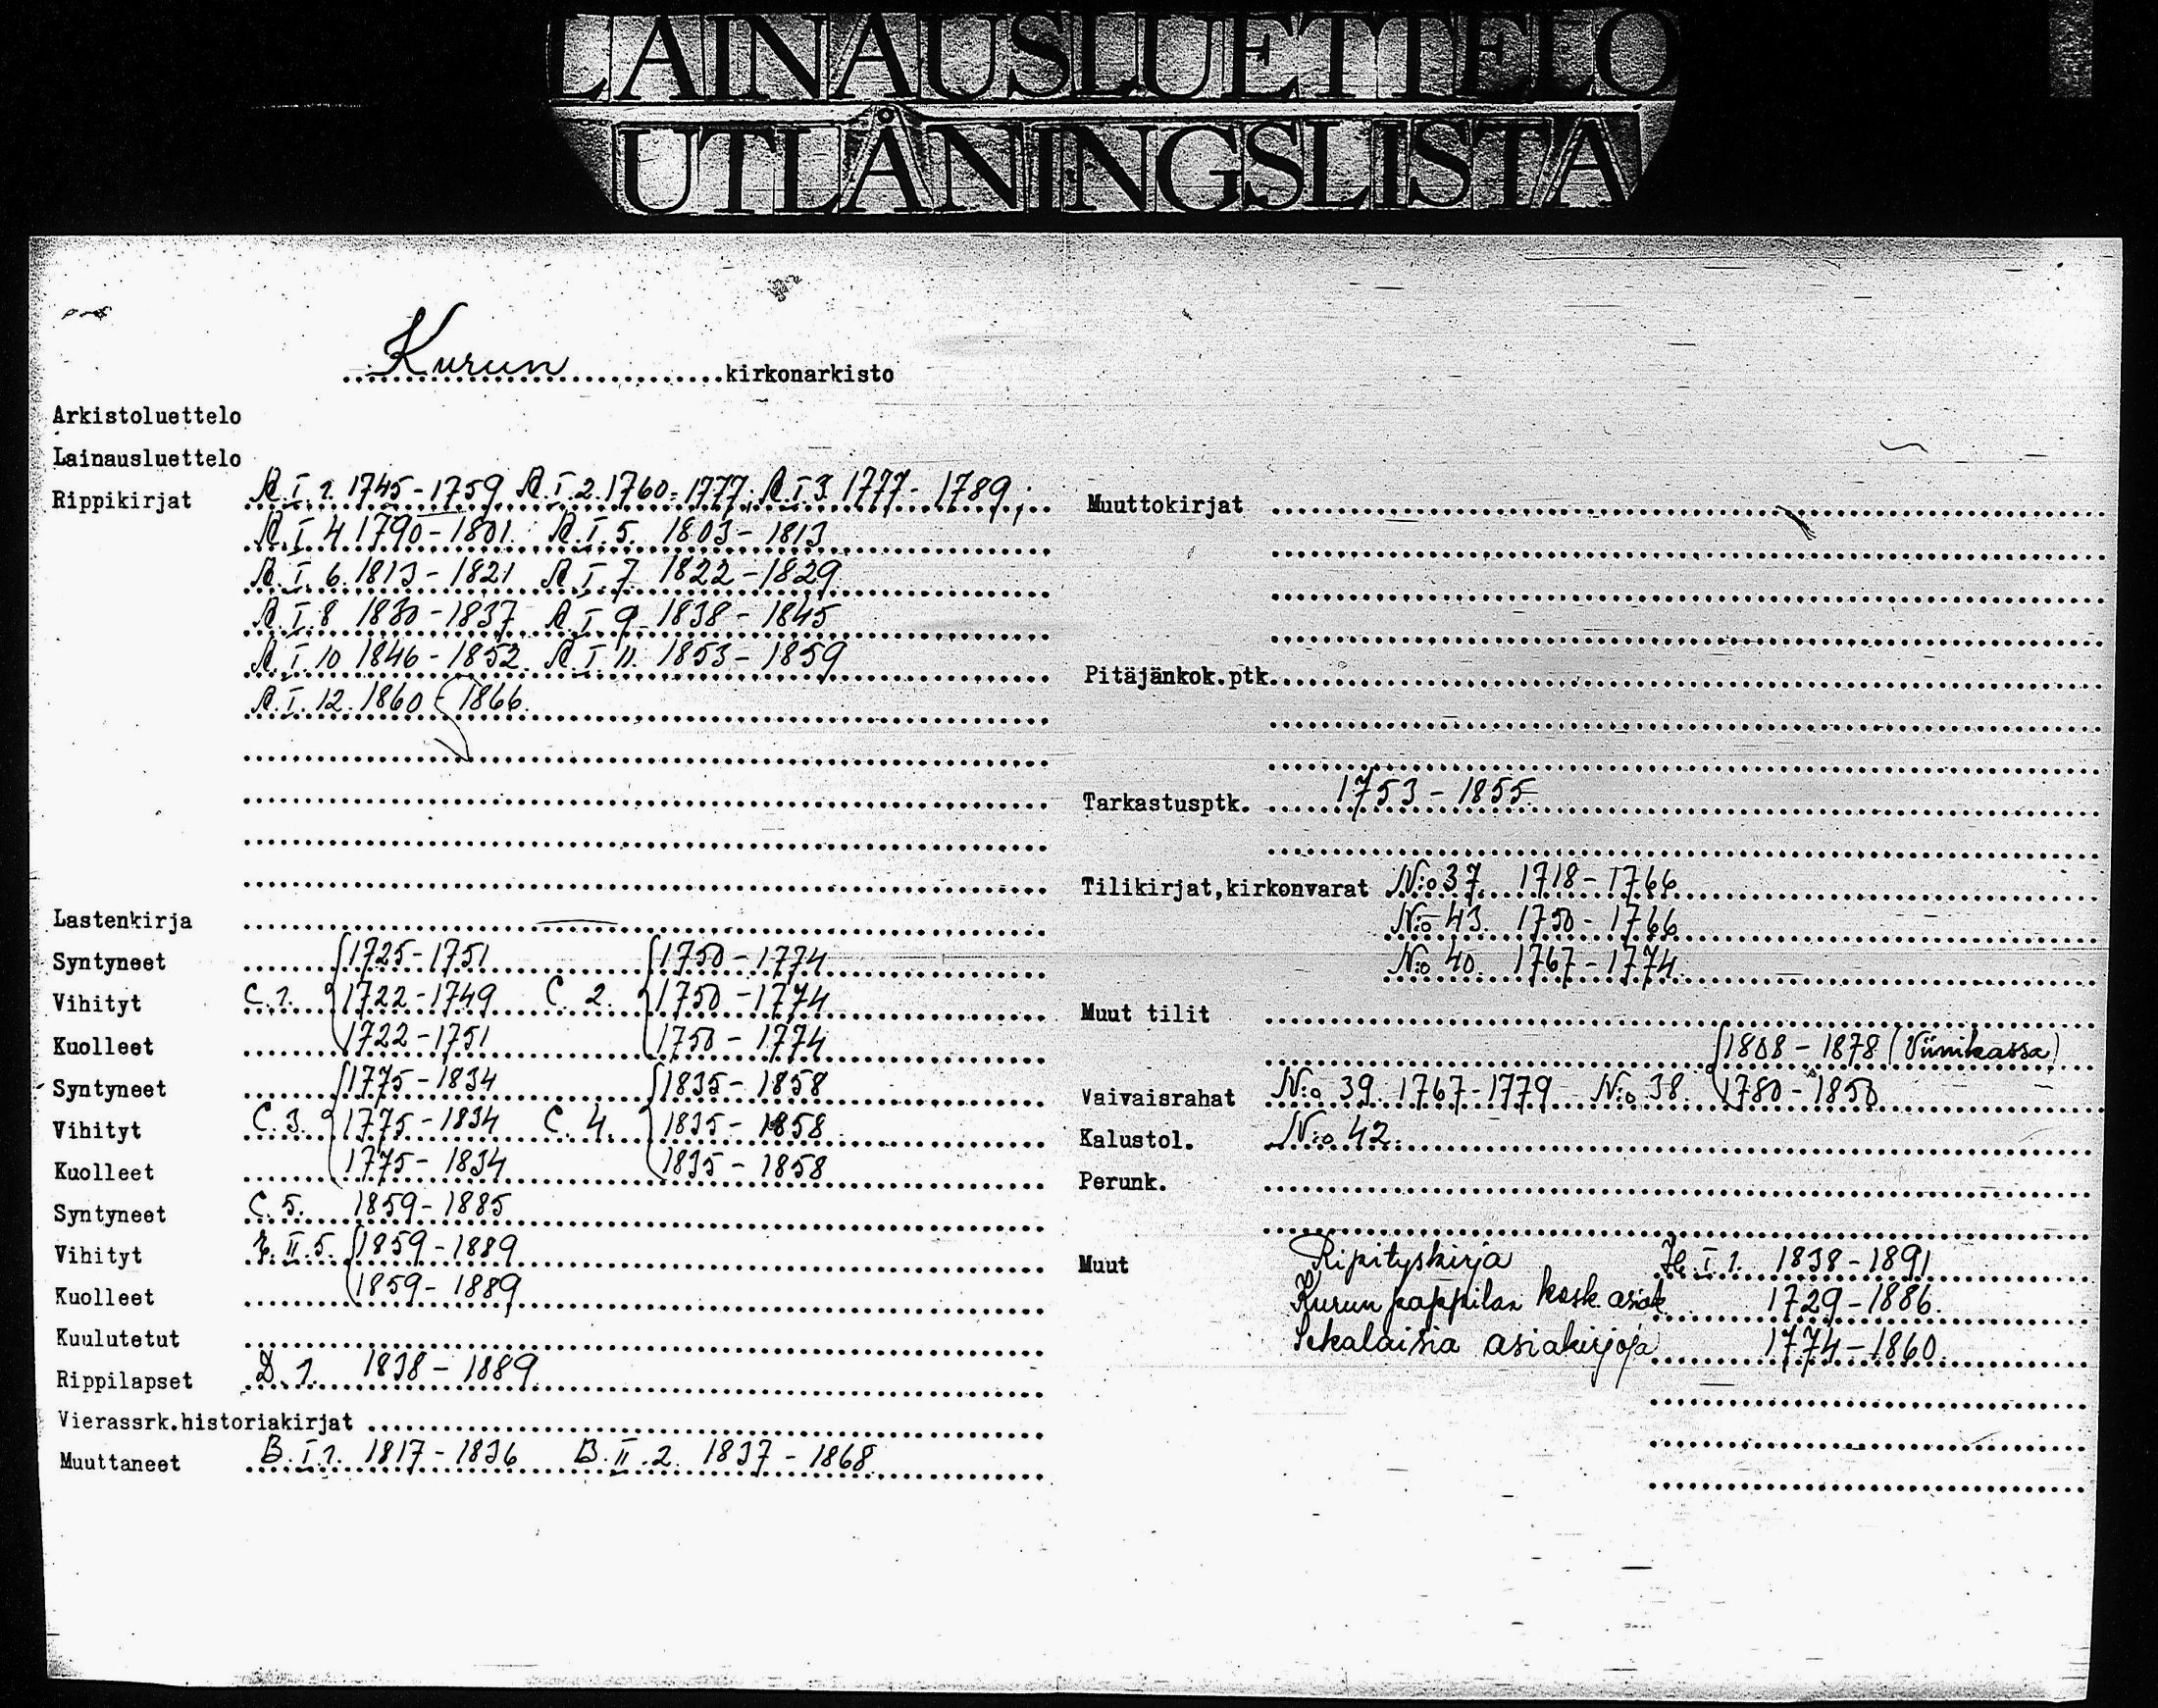 LAINAUSLUETTELO
UTLÅNINGSLISTA
Kurun kirkonarkisto
Arkistoluettelo
Lainausluettelo
Rippikirjat A.I.1. 1745-1759 A.I.2. 1760-1777; A.I.3. 1777-1789;
A.I.4 1790-1801. A.I.5. 1803-1813
A.I.6. 1813-1821 A.I.7. 1822-1829
A.I.8 1830-1837 A.I.9 1838-1845
A.I.10 1846-1852. A.I.11. 1853-1859
A.I.12. 1860-1866.
Lastenkirja
Syntyneet 1725-1751 1750-1774
Vihityt C.1. 1722-1749 C.2. 1750-1774
Kuolleet 1722-1751 1750-1774
Syntyneet 1775-1834 1835-1858
Vihityt C.3. 1775-1834 C.4. 1835-1858
Kuolleet 1775-1834 1835-1858
Syntyneet C.5. 1859-1885
Vihityt II.5. 1859-1889
Kuolleet 1859-1889
Kuulutetut
Rippilapset D.1. 1838-1889
Vierassrk.historiakirjat
Muuttaneet B.I.1. 1817-1836 B.II.2. 1837-1868
Muuttokirjat
Pitäjänkok.ptk.
Tarkastusptk. 1753-1855
Tilikirjat,kirkonvarat N:o 37. 1718-1766
N:o 43. 1750-1766
N:o 40. 1767-1774.
Muut tilit
1808-1878 (Viinikassa)
Vaivaisrahat N:o 39. 1767-1779 N:o 38. 1780-1850
Kalustol. N:o 42.
Perunk.
Muut Ripityskirja I 1. 1838-1891
Kurun pappilan kosk. asiak. 1729-1886.
Sekalaisia asiakirjoja 1774-1860.